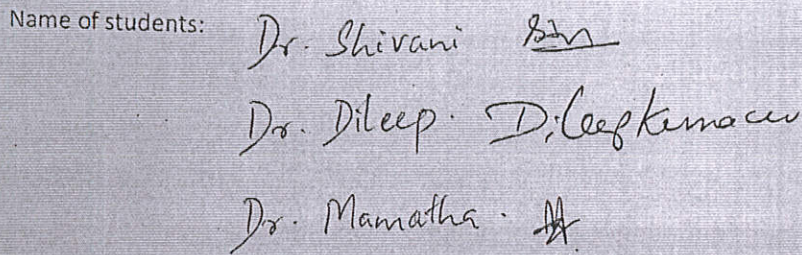 Name of students: Dr. Shivani
Dr. Dileep. Dileepkumar
Dr. Mamatha.